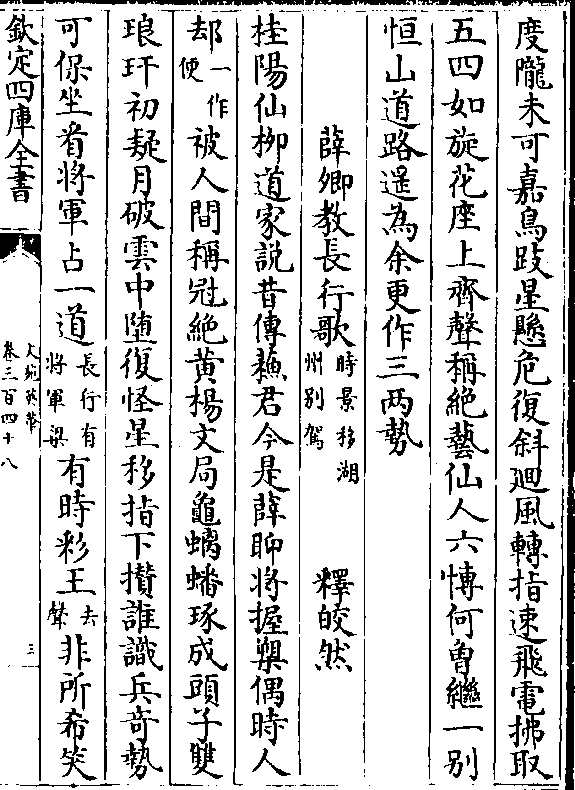 度隴未可嘉鳥跂星懸危復斜廻風轉指速飛電拂取
五四如旋花座上齊聲稱絶藝仙人六博何曽繼一别
恒山道路遥為余更作三兩勢
薛卿教長行歌時景移湖州别駕 釋皎然
桂陽仙栁道家説昔傳蘓君今是薛聊將握槊偶時人
却一作便被人間稱冠絶黄楊文局龜螭蟠琢成頭子雙
琅玕初疑月破雲中堕復怪星移指下攅誰識兵竒勢
可保坐看將軍占一道長行有將軍梁有時彩王去聲非所希笑
欽定四庫全書
文苑英華
卷三百四十八
三